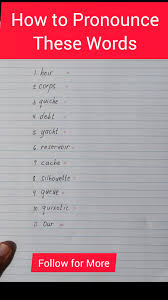 How to Pronounce
These Words
1. heir =
2. corps =
3. quiche =
4. debt =
5. yacht =
6. reservoir =
7. cache =
8. silhouette =
9. queue =
10. quixotic =
11. Our =
Follow for More